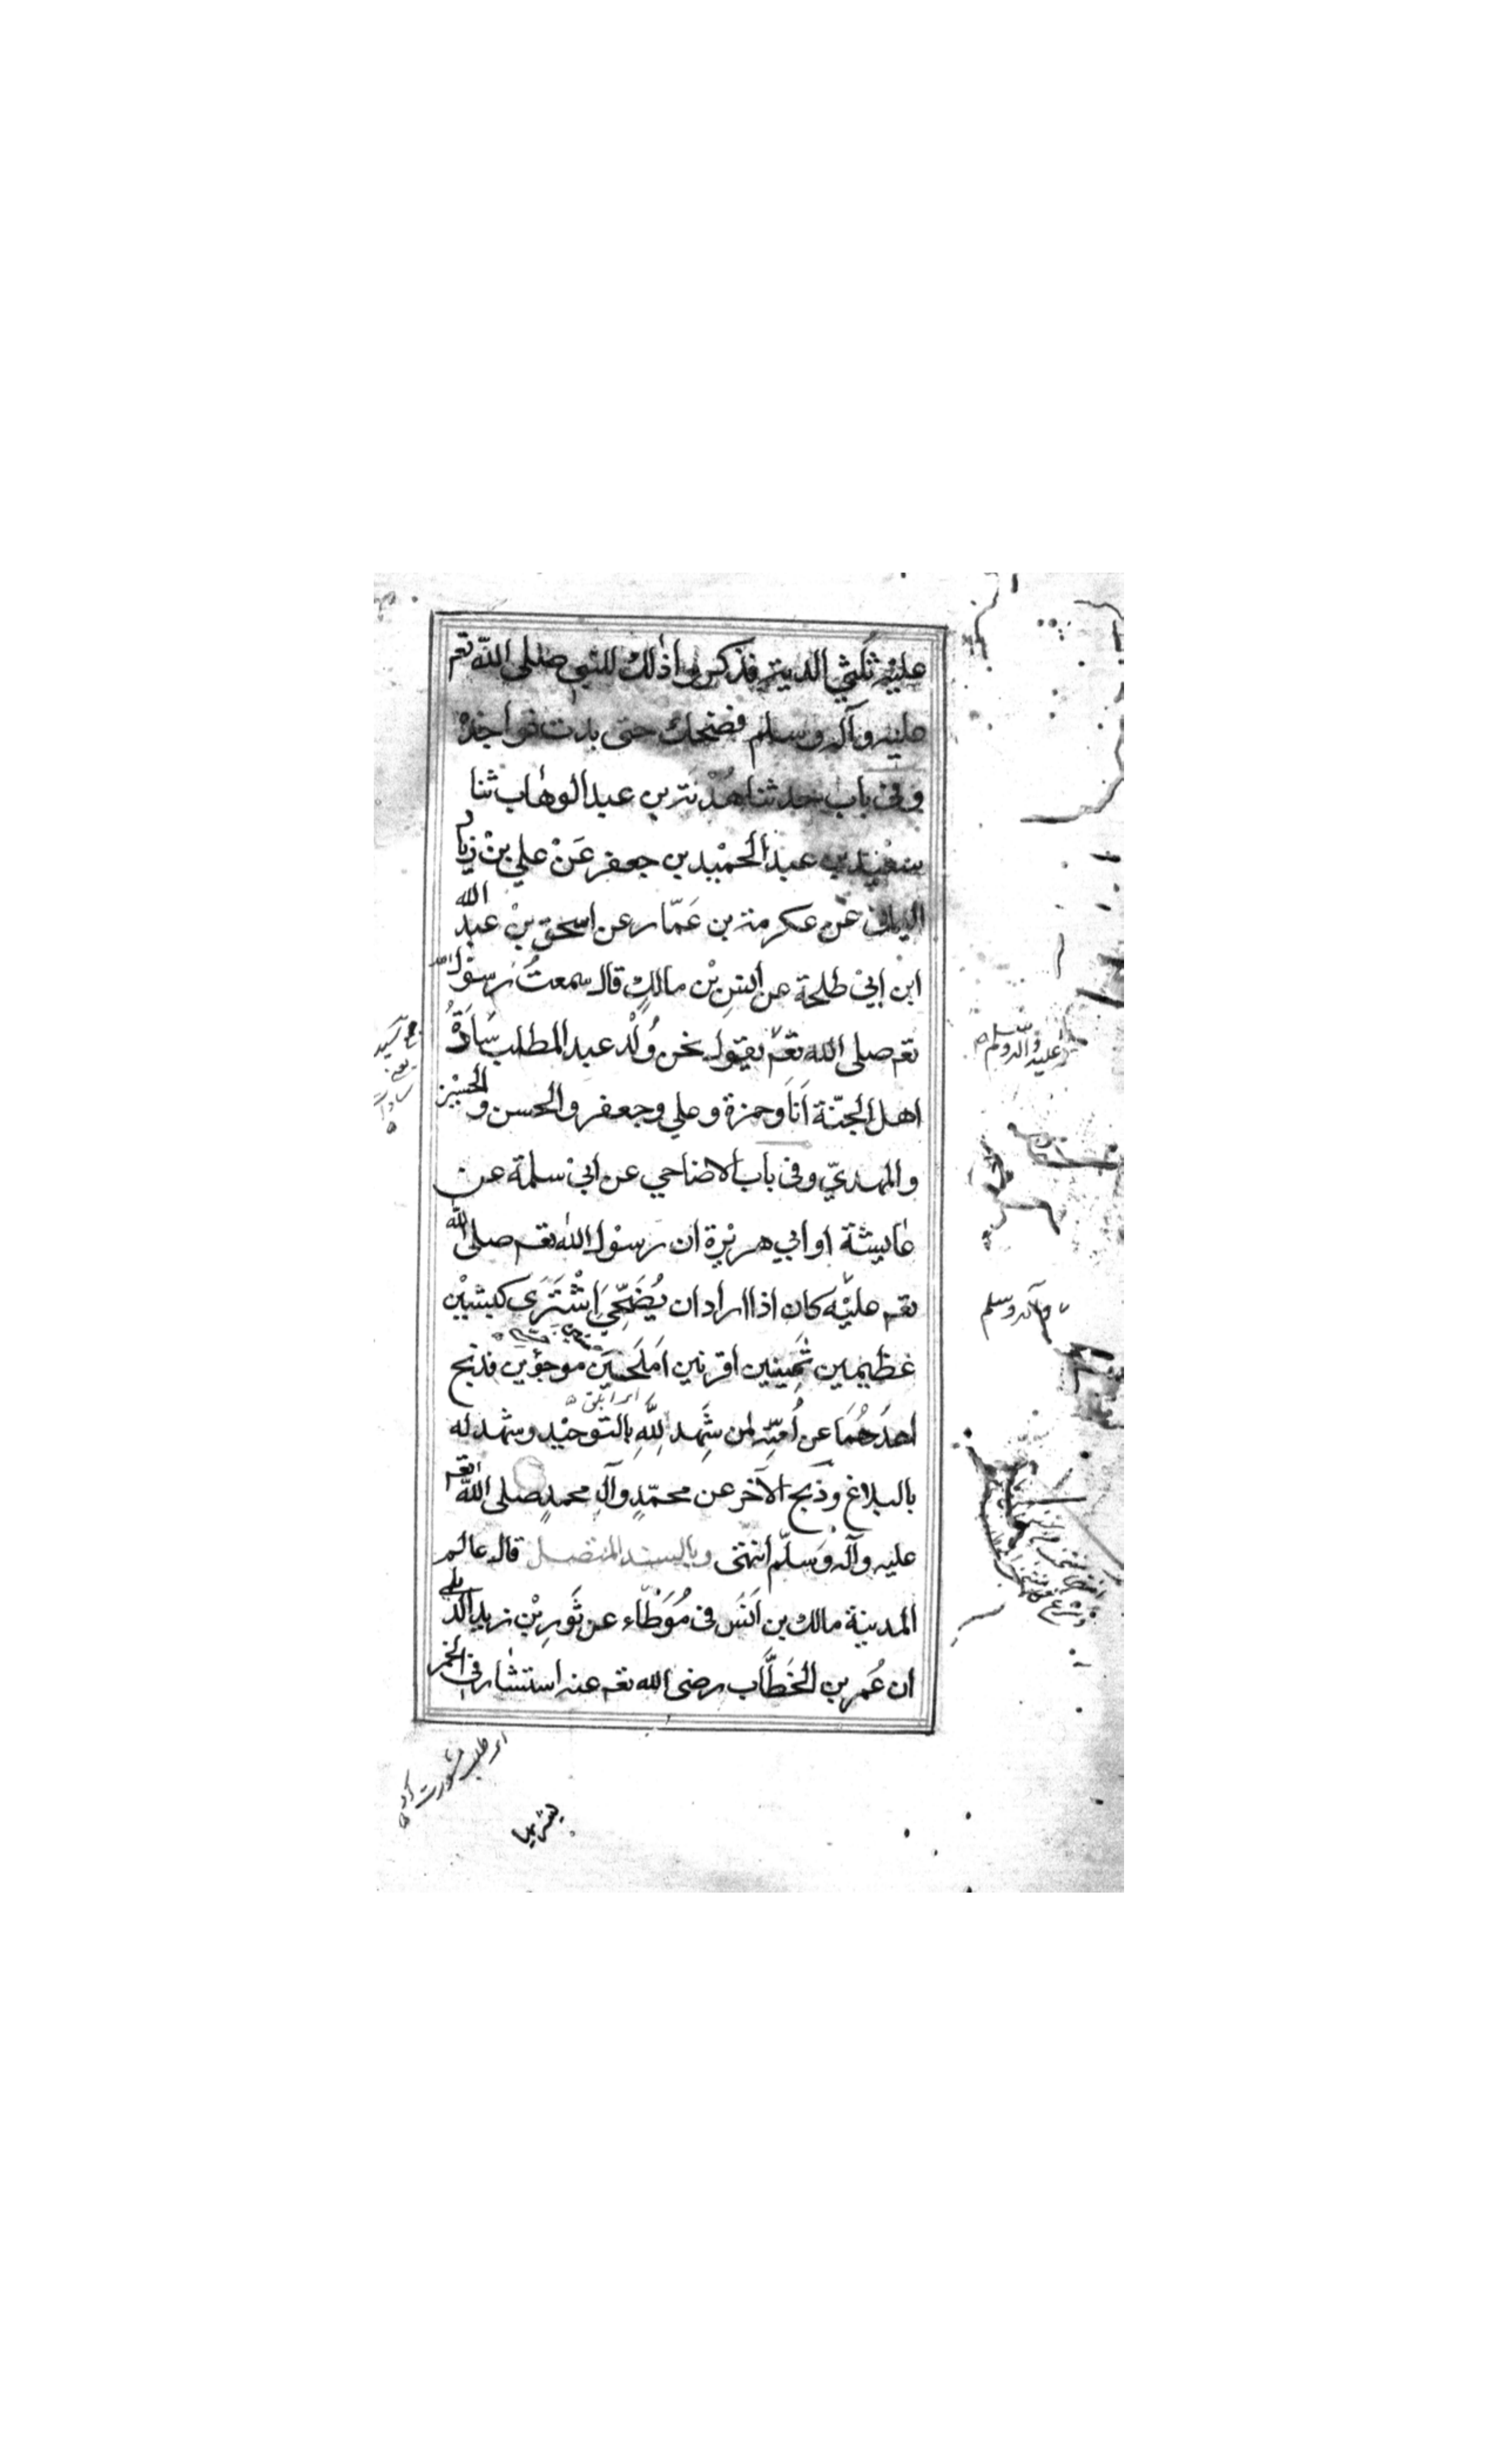 عليه ثلثي الدية فذكروا ذلك للنبي صلى الله تعم
عليه وآله وسلم فضحك حتى بدت نواجذه
وفي باب حدثنا هدية بن عبد الوهاب ثنا
سعيد بن عبد الحميد بن جعفر عَنْ علي بنْ زياد
اليماني عن عكرمة بن عَمّار عن اسحق بنْ عبد الله
ابن ابيْ طلحة عن انسِ بْن مالكٍ قال سمعتُ رسوْل الله
تعم صلى الله تعم يقول نحن وُلْد عبد المطلب سَادَةُ
اهل الجنّة اَنَا وحمزة وعلي وجعفر والحسن والحسين
والمهديّ وفي باب الاضاحي عن ابيْ سلمة عن
عايشة او ابي هريْرة ان رسوْل الله تعم صلى الله
تعم عليْه كان اذا اراد ان يُضَحِّيَ اِشْتَرَى كبشيْن
عظيمين ثَمِينين اقرنين اَملَحَيَن موجوْين فذبح
احدَهُمَا عن اُمتِّه لمن شَهِد لِلّهِ بالتوحيْد وشهد له
بالبلاغ وذبح الآخر عن محمّدٍ وآلِ محمدٍ صلى الله تعم
عليه وآله وَسلّم انتهى وبالسند المتصل قال عالم
المدينة مالك بن اَنَس في مُوَطّاء عن ثَورِ بْنِ زيد الديلي
ان عُمر بن الخَطَّاب رضى الله تعم عنه استشار في الخمر
عليه وآله وسلم
وآله وسلم
جمع سيد يعني سادات
اى ابلق
اى طلب مشورت كرد
يشربها